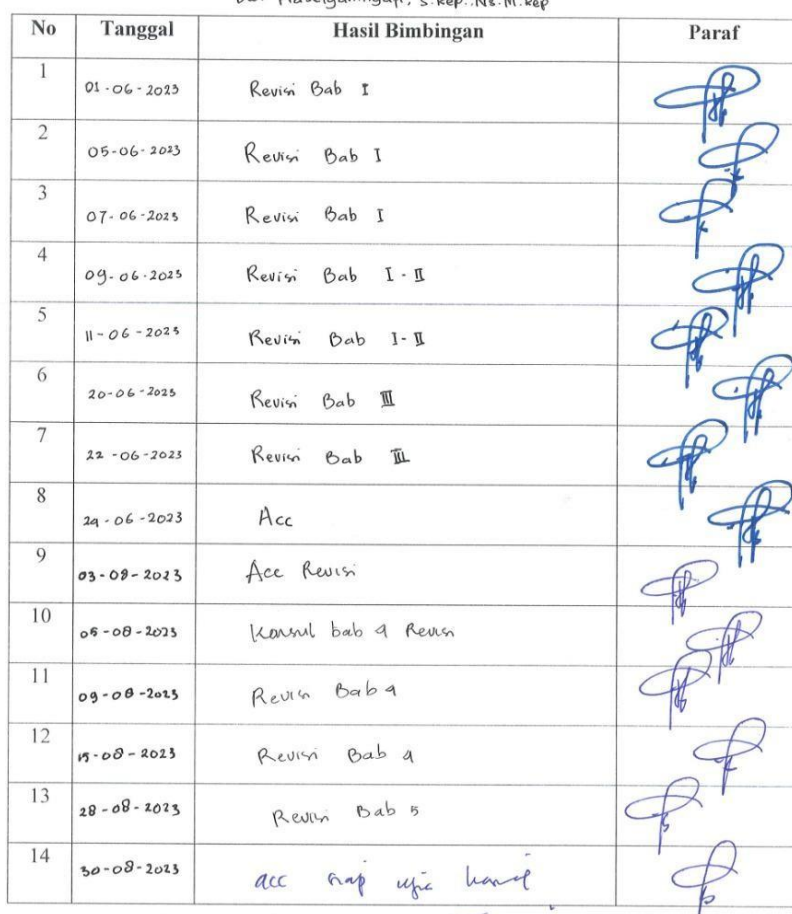 S.Kep.,Ns.M.Kep
No Tanggal Hasil Bimbingan Paraf
1 01-06-2023 Revisi Bab I
2 05-06-2023 Revisi Bab I
3 07-06-2023 Revisi Bab I
4 09-06-2023 Revisi Bab I-II
5 11-06-2023 Revisi Bab I-II
6 20-06-2023 Revisi Bab III
7 22-06-2023 Revisi Bab III
8 -06-2023 Acc
9 03-08-2023 Acc Revisi
10 -08-2023 Konsul bab 4 Revisi
11 09-08-2023 Revisi Bab 4
12 15-08-2023 Revisi Bab 4
13 28-08-2023 Revisi Bab 5
14 30-08-2023 acc siap ujian hasil